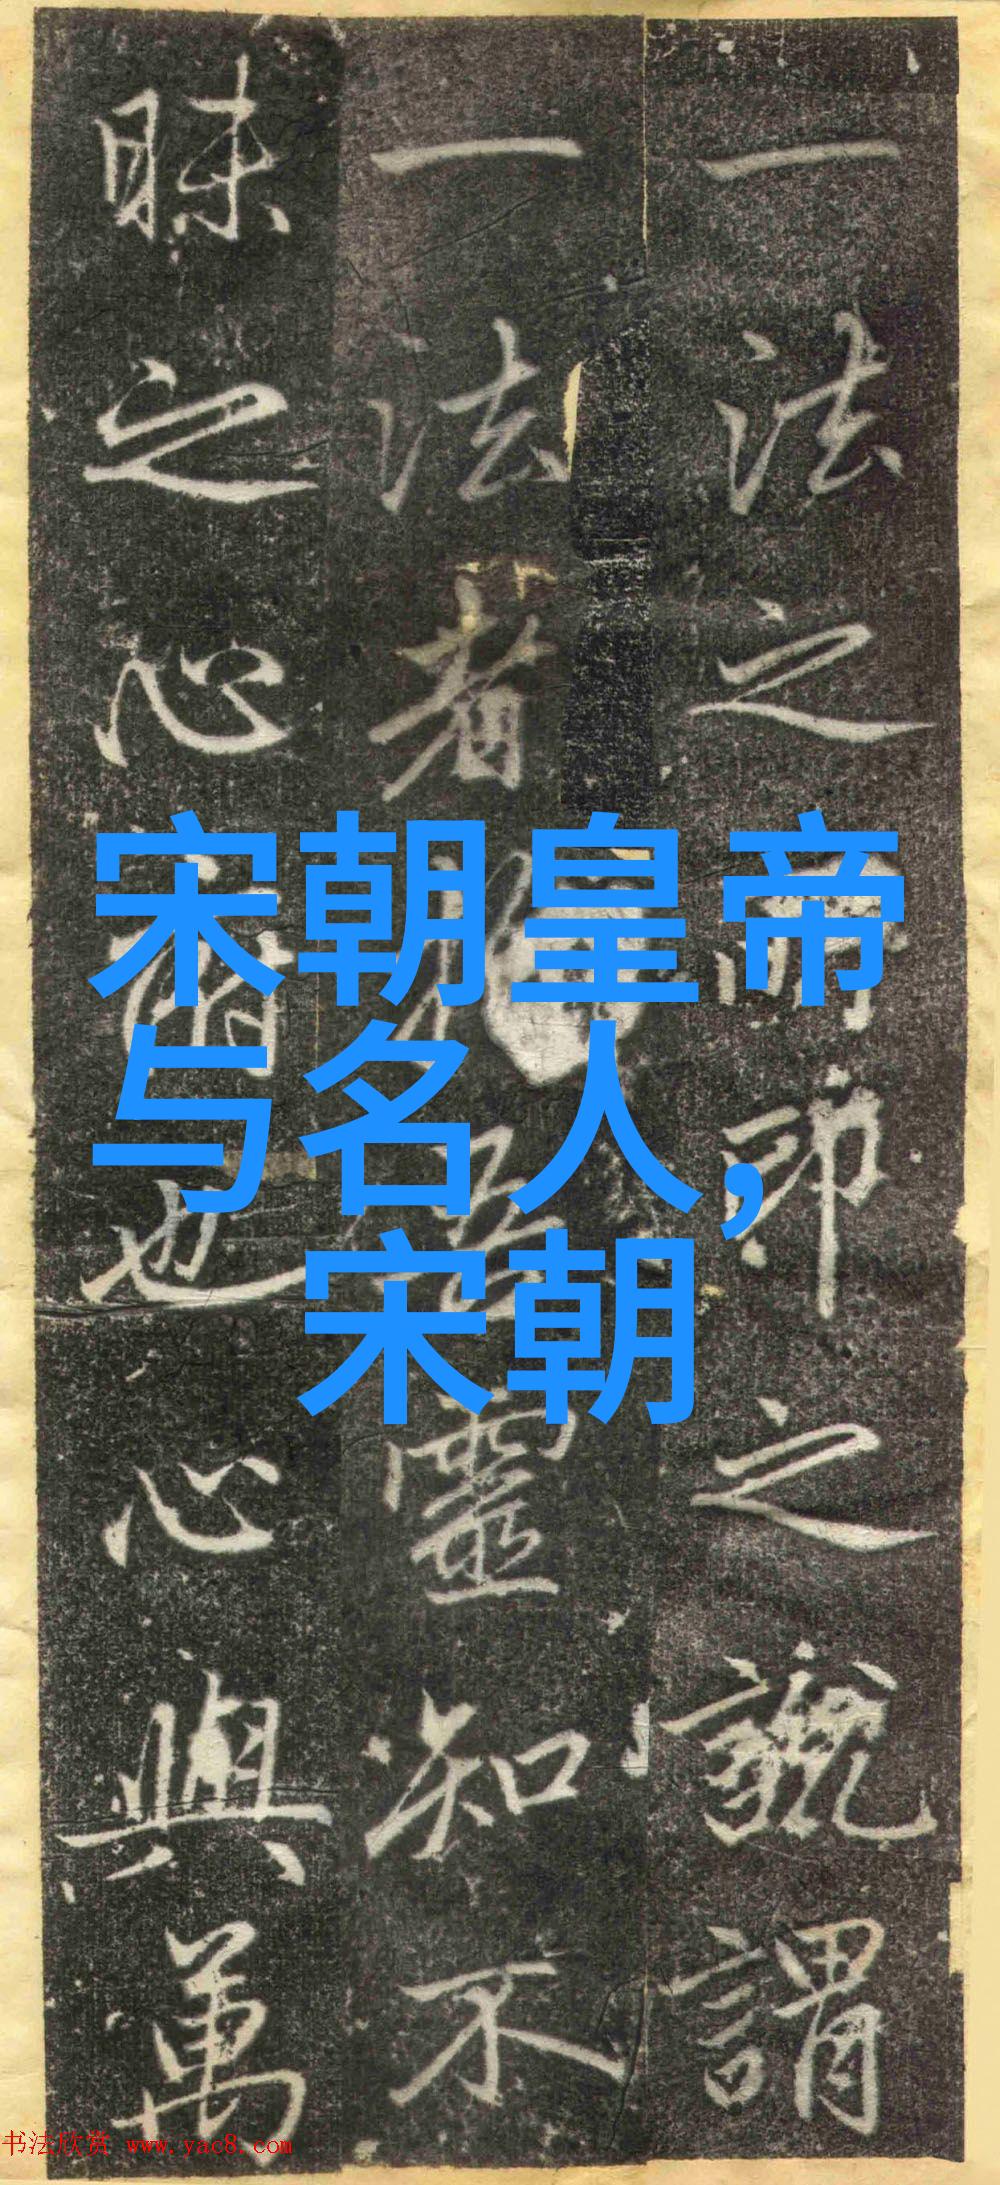 一法之印之謂
一法者靈知不
昧之心也心與萬
宋朝皇帝
与名人，
宋朝
书法欣赏 www.yac8.com